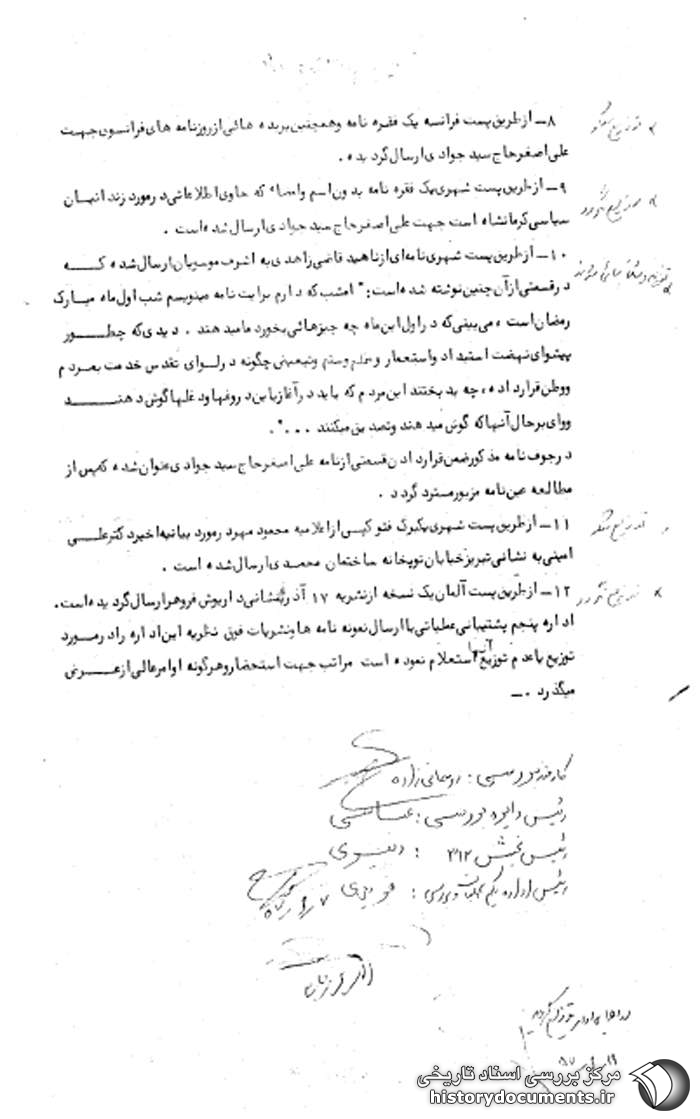 ۸ـ از طریق پست فرانسه یک فقره نامه و همچنین بریده هائی از روزنامه های فرانسوی جهت
علی اصغر حاج سید جوادی ارسال گردیده .
۹ـ از طریق پست شهری یک فقره نامه بدون اسم و امضاء که حاوی اطلاعاتی در مورد زندانیان
سیاسی کرمانشاه است جهت علی اصغر حاج سید جوادی ارسال شده است .
۱۰ـ از طریق پست شهری نامه ای از ناهید قاضی زاهدی به اشرف موسویان ارسال شده که
در قسمتی از آن چنین نوشته شده است : " امشب که دارم برایت نامه مینویسم شب اول ماه مبارک
رمضان است ، می بینی که در اول این ماه چه چیزهائی بخورد ما میدهند . دیدی که چطور
پیشوای نهضت استبداد و استعمار و ظلم و ستم و تبعیض چگونه در لوای تقدس خدمت بمردم
و وطن قرار داده ، چه بدبختند این مردم که باید در آغاز باین دروغها و دغلها گوش دهند
و وای بر حال آنها که گوش میدهند و تصدیق میکنند ... " .
در جوف نامه مذکور ضمن قرار دادن قسمتی از نامه علی اصغر حاج سید جوادی عنوان شده که پس از
مطالعه عین نامه مزبور مسترد گردد .
۱۱ـ از طریق پست شهری یکبرگ فتوکپی از اعلامیه محمود مهر در مورد بیانیه اخیر دکتر علی
امینی به نشانی تبریز خیابان توپخانه ساختمان محمدی ارسال شده است .
۱۲ـ از طریق پست آلمان یک نسخه از نشریه ۱۷ آذر بنشانی داریوش فروهر ارسال گردیده است .
اداره پنجم پشتیبانی عملیاتی با ارسال نمونه نامه ها و نشریات فوق نظریه این اداره را در مورد
توزیع یا عدم توزیع آنها استعلام نموده است مراتب جهت استحضار و هرگونه اوامر عالی از عرض
میگذرد .ـ
توزیع شود
کارمند بررسی :
رئیس دایره بررسی :
رئیس بخش ۳۱۲ :
رئیس اداره یکم عملیات و بررسی :
مرکز بررسی اسناد تاریخی
historydocuments.ir